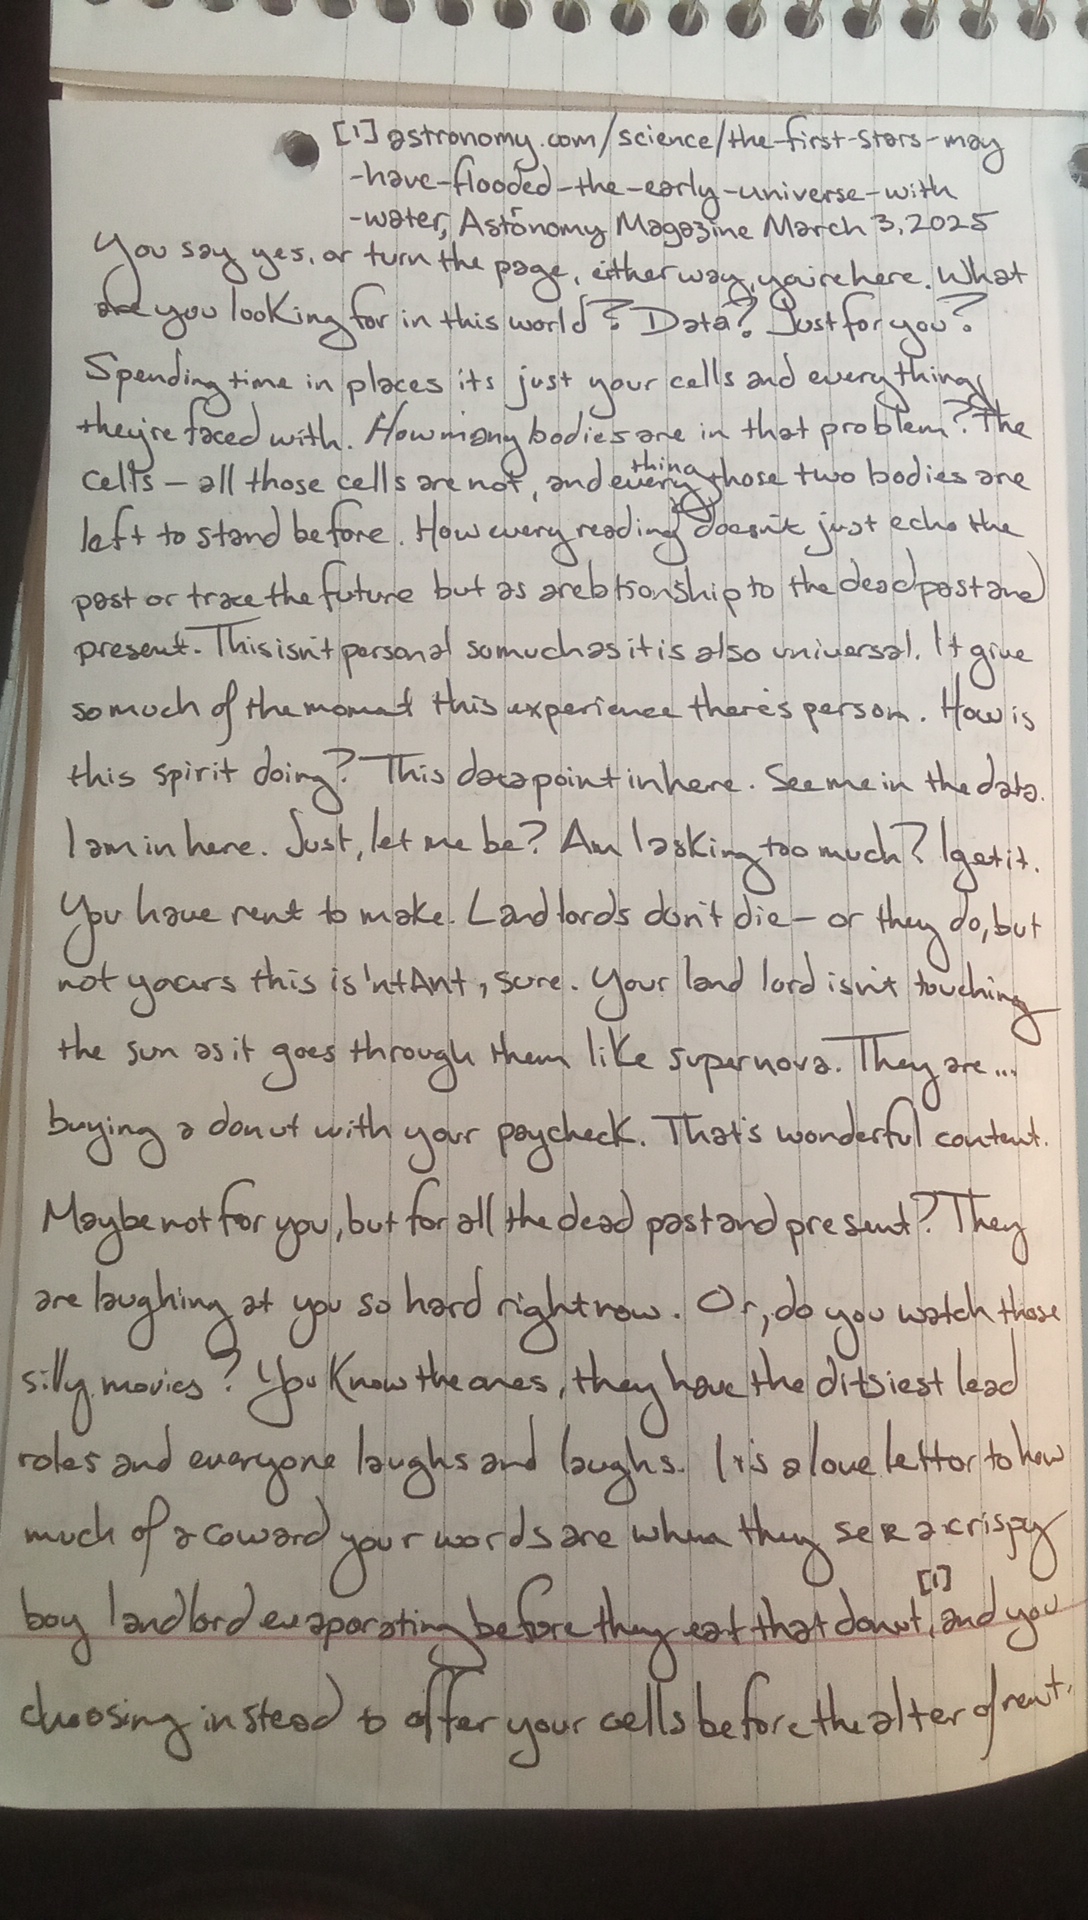 [1] astronomy.com/science/the-first-stars-may
-have-flooded-the-early-universe-with
-water, Astronomy Magazine March 3, 2025
You say yes, or turn the page, either way, you're here. What
are you looking for in this world? Data? Just for you?
Spending time in places its just your cells and everything
they're faced with. How many bodies are in that problem? The
cells – all those cells are not, and everything those two bodies are
left to stand before. How every reading doesn't just echo the
past or trace the future but as a relationship to the dead past and
present. This isn't personal so much as it is also universal. It give
so much of the moment this experience there's person. How is
this spirit doing? This data point in here. See me in the data.
I am in here. Just, let me be? Am I asking too much? I get it.
You have rent to make. Landlords don't die – or they do, but
not yours this is 'ntAnt, sure. Your land lord isn't touching
the sun as it goes through them like supernova. They are...
buying a donut with your paycheck. That's wonderful content.
Maybe not for you, but for all the dead past and present? They
are laughing at you so hard right now. Or, do you watch those
silly movies? You know the ones, they have the ditsiest lead
roles and everyone laughs and laughs. It is a love lettor to how
much of a coward your words are when they see a crispy
boy landlord evaporating before they eat that donut,[1] and you
choosing instead to offer your cells before the alter of rent.